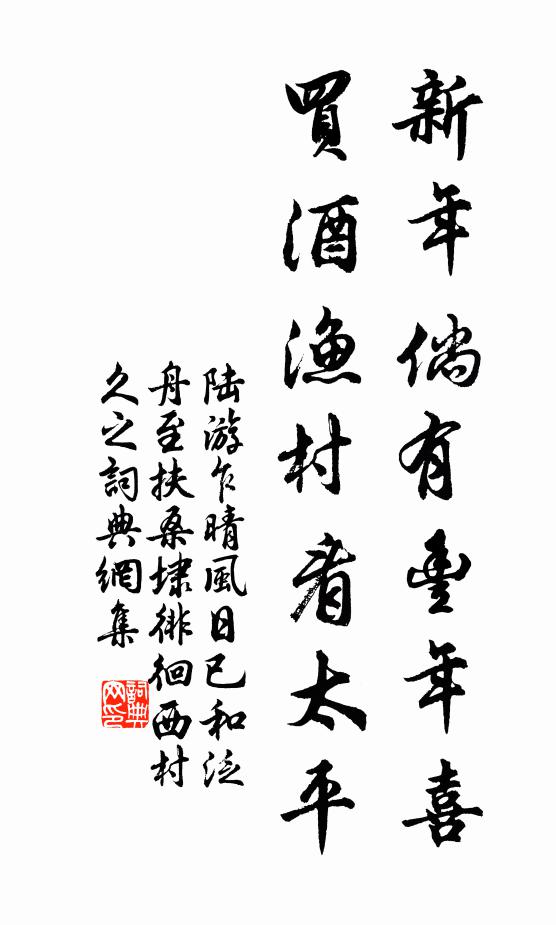 新年倘有豐年喜
買酒漁村看太平
陆游乍晴風日已和泛
舟至扶桑埭徘徊西村
久之詞典網集
詞典
网印